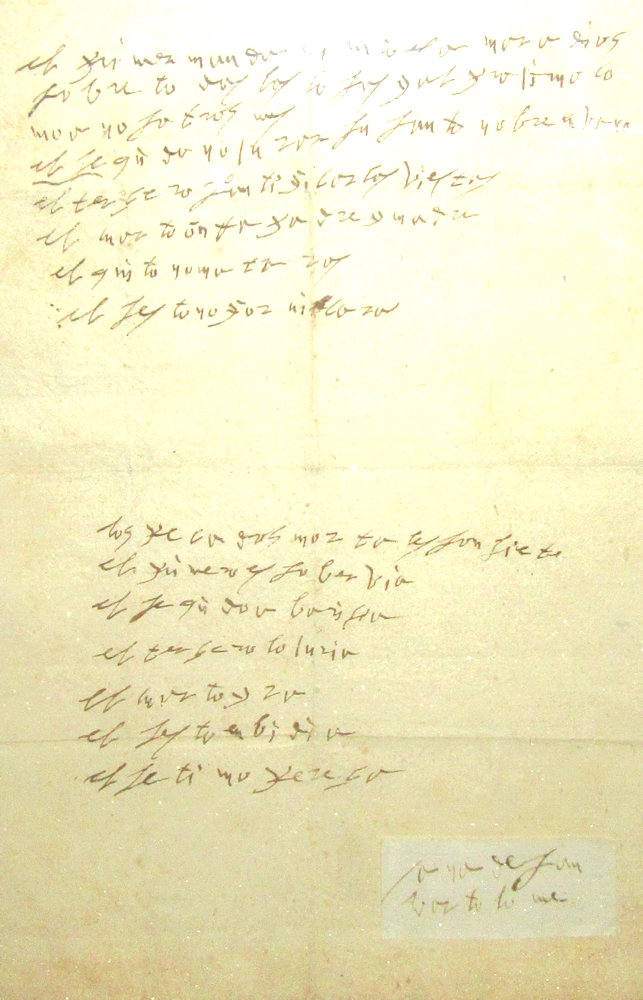 el primer mandami amor a dios
sobre todas las cosas y al proximo co
mo a nosotros mes
el segũdo no jurar su santo nobre en bano
el tersero santifi cor las fiestas
el cuarto õnra padre y madre
el quito no mata ras
el sesto no for nicara
los pecados mor ta les son siete
el primero es soberbia
el segũdo a baricia
el tersero lo juria
el cuarto yra
el sesto enbidia
el setimo peresa
a ña de san
bar to lo me